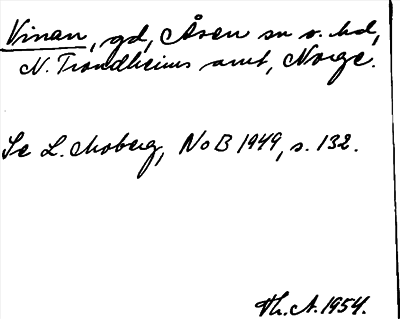 Vinan, gd, Åsen sn o. hd,
N. Trondheims amt, Norge.
Se L. Moberg, NoB 1949, s. 132.
Th. A. 1954.